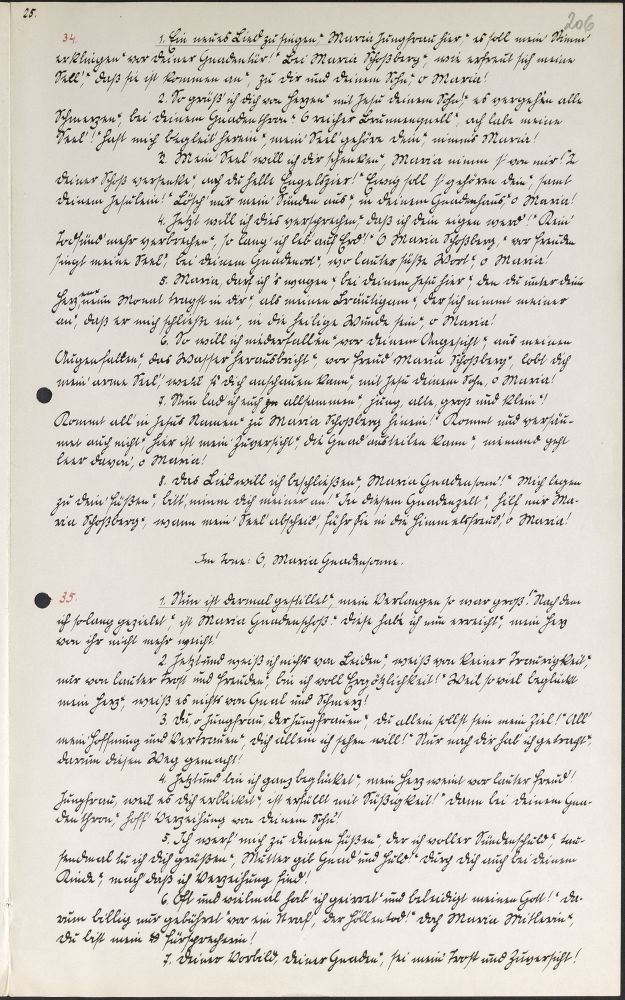 25.
206
34. 1. Ein neues Lied zu singen“, Maria Jungfrau hier“, es soll mein Stimm
erklingen“ vor deiner Gnadentür!“ Bei Maria Schoßberg“, wie erfreut sich meine
Seel',“ daß sie ist kommen an“, zu dir und deinem Sohn, o Maria!
2. So grüß' ich dich von Herzen“ mit Jesu deinem Sohn,“ es vergehen alle
Schmerzen“, bei deinem Gnadenthron.“ O reicher Brunnenquell“, ach labe meine
Seel'!“ Hast mich begleit' herein“, mein Seel' gehöre dein“, nimms Maria!
3. Mein Seel' will ich dir schenken“, Maria nimm s' von mir!“ In
deiner Schoß versenke“, auch du helle Engelszier!“ Ewig soll s' gehören dein“, samt
deinem Jesulein!“ Lösch' mir mein' Sünden aus“, in deinem Gnadenhaus,“ o Maria!
4. Jetzt will ich dies versprechen“, daß ich dein eigen werd'!“ Kein'
Todsünd' mehr verbrechen“, so lang' ich leb auf Erd'!“ O Maria Schoßberg,“ vor Freuden
singt meine Seel', bei deinem Gnadenort“, wo lauter süße Wort“, o Maria!
5. Maria, darf ich's wagen“, bei deinem Jesu hier“, den du unter dein
Herz neun Monat tragst in dir“, als meinen Bräutigam“, der sich nimmt meiner
an', daß er mich schließe ein“, in die heilige Wunde sein“, o Maria!
6. So will ich niederfallen“, vor deinem Angesicht“, aus meinen
Augen fallen“, das Wasser herausbricht“, vor Freud' Maria Schoßberg“, lobt dich
mein' arme Seel', weil s' dich anschauen kann“, mit Jesu deinem Sohn, o Maria!
7. Nun lad' ich euch allsammen“, jung, alt, groß und klein“!
Kommt all' in Jesus Namen“ zu Maria Schoßberg hinein!“ Kommt und versäu-
met auch nicht“, hier ist mein Zuversicht“, die Gnad' austeilen kann“, niemand geht
leer davon, o Maria!
8. Das Lied will ich beschließen“, Maria Gnadensonn'!“ Mich legen
zu dein' Füßen“, bitt', nimm dich meiner an!“ In diesem Gnadenzelt“, hilf mir Ma-
ria Schoßberg“, wann mein' Seel' abscheid', führ sie in die Himmelsfreud', o Maria!
Im Tone: O, Maria Gnadensonne.
35. 1. Nun ist dermal gestillet“, mein Verlangen so war groß!“ Nach dem
ich solang gezielet“, ist Maria Gnadenschoß.“ Diese habe ich nun erreicht“, mein Herz
von ihr nicht mehr weicht!
2. Jetztund weiß ich nichts von Leiden“, weiß von keiner Traurigkeit,“
nur von lauter Trost und Freuden“, bin ich voll Ergötzlichkeit!“ Weil so viel beglückt
mein Herz“, weiß es nichts von Qual und Schmerz!
3. Du, o Jungfrau, der Jungfrauen“, du allein sollst sein mein Ziel!“ All'
mein Hoffnung und Vertrauen“, dich allein ich sehen will!“ Nur nach dir hab' ich getracht“,
darum diesen Weg gemacht!
4. Jetztund bin ich ganz beglücket“, mein Herz weint vor lauter Freud'!
Jungfrau, weil es dich erblicket“, ist erfüllt mit Süßigkeit!“ Dann bei deinem Gna-
denthron“, hoff' Verzeihung von deinem Sohn!
5. Ich werf' mich zu deinen Füßen“, der ich voller Sündenschuld“, tau-
sendmal tu ich dich grüßen“, Mutter gib Gnad' und Huld“ durch dich auch bei deinem
Kinde“, mach' daß ich Verzeihung find!
6. Oft und vielmal hab' ich geirret“ und beleidigt meinen Gott!“ Da-
rum billig mir gebühret“ vor ein Straf', der Höllentod!“ Doch Maria Mittlerin“,
du bist mein Fürsprecherin!
7. Deiner Vorbild, deiner Gnaden“, sei mein Trost und Zuversicht!